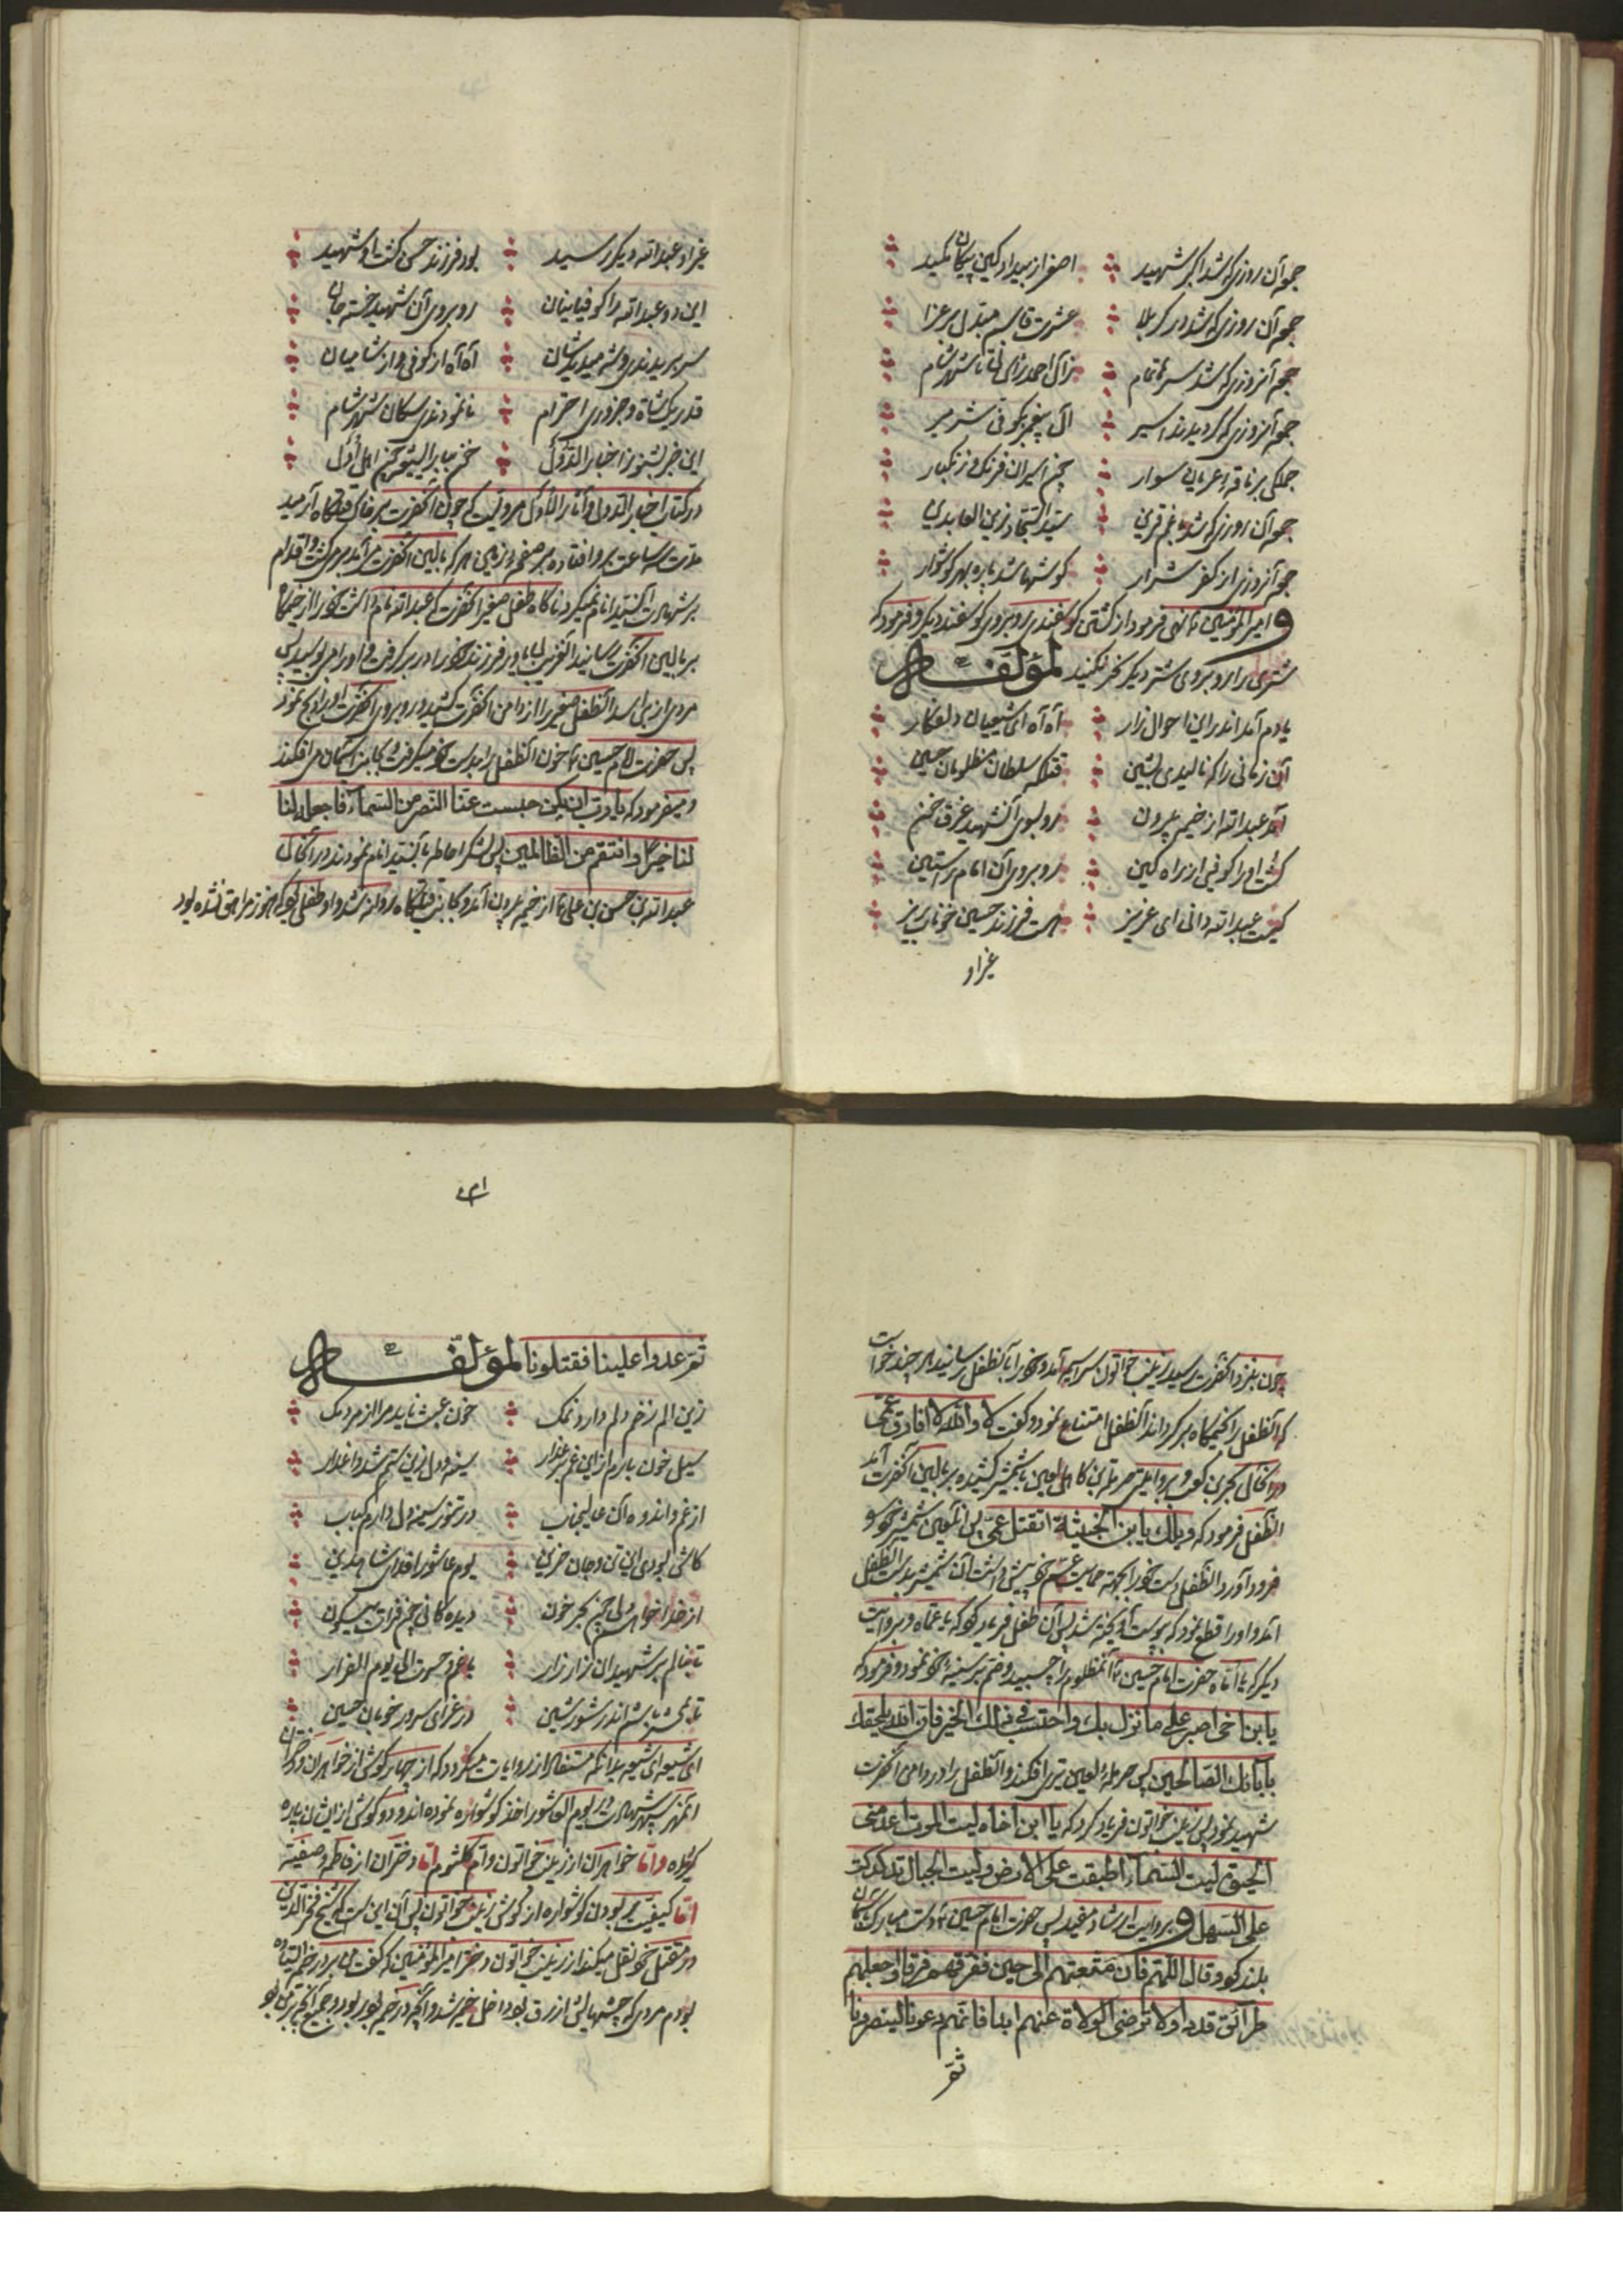 همچو آن روزی که شد اکبر شهید اصغر از بیداد کین پیکان مکید
همچو آن روزی که شد در کربلا عشرت قاسم مبدل بر عزا
همچو آنروزی که شد سر تمام زال احمد تا شهر شام
همچو آنروزی که گردیدند اسیر آل پیغمبر کوفی شریر
جملگی بر ناقه عریان سوار همچو اسیران فرنک و زنکبار
همچو آن روزی که شد با غم قرین سید السجاد زین العابدین
همچو آنروزی از کفر شرار گوشها شد پاره بهر گوشوار
و امیر المؤمنین نهی فرمود از کشتن گوسفندی روبروی گوسفند دیگر و فرمود که
شتری را روبروی شتر دیگر نحر نکنید لمؤلفه
یادم آمد اندر این احوال زار آه آه ای شیعیان دلفکار
آن زمانی را که نالیدی بشین قتلگه سلطان مظلومان حسین
آمد عبدالله از خیمه برون رو بسوی آن شهید غرق خون
کشت او را کوفی از راه کین روبروی آن امام راستین
کیست عبدالله دانی ای عزیز هست فرزند حسین خوناب ریز
غیر او
غیر او عبدالله دیگر رسید بود فرزند حسن گشت او شهید
این دو عبدالله را کوفیانان روبروی آن شهید خسته جان
سر بریدندی و شه میدیدشان آه آه از کوفی و از شامیان
قدر یک شاة و جزوری احترام نانمودندی سکان شهر شام
این خبر بشنو ز اخبار الدول
در کتاب اخبار الدول و آثار الاول مرویست که چون آنحضرت بر خاک قتلگاه آرمید
مدت سه ساعت بر رو افتاده بر صفحه زمین هر که ببالین آنحضرت میآمد برمیگشت و اقدام
بر شهادت آن سید انام نمیکرد ناگاه طفل صغیر آنحضرت که عبدالله نام داشت خود را از خیمه‌گاه
ببالین آنحضرت رسانید آنغریب بیاور فرزند خود را در بر گرفت و او را میبوسید پس
مردی از بنی اسد آنطفل صغیر را از دامن آنحضرت کشید و روبروی آنحضرت او را ذبح نمود
پس حضرت امام حسین خون آنطفل را بدست خود میگرفت و بجانب آسمان میافکند
و میفرمود که یا رب ان یکن حبست عنا النصر من السماء فاجعل لنا
لنا خیرا و انتقم من الظالمین پس لشکر احاطه بآن سید انام نمودند در آنحال
عبدالله بن حسن بن علی از خیمه بیرون آمد و بجانب قتلگاه روانه شد و او طفلی بود که هنوز مراهق نشده بود
چون بنزد آنحضرت رسید زینب خاتون سراسیمه آمد و خود را بآنطفل رسانید هر چند خواست
که آنطفل را بخیمگاه برگرداند آنطفل امتناع نمود و گفت لا والله لا افارق عمی
در آنحال بجر بن کعب و بروایتی حرملة بن کاهل لعین با شمشیر کشیده ببالین آنحضرت آمد
آنطفل فرمود که ویلک یا بن الخبیثة اتقتل عمی پس آنلعین شمشیر خود را
فرود آورد و آنطفل دست خود را بجهة حمایت عم خویش داشت آن شمشیر بدست آنطفل
آمد و او را قطع نمود که بپوست آویخته شد پس آن طفل فریاد کرد که یا عماه و بروایت
دیگر که یا اماه حضرت امام حسین آنمظلوم را چسبید و ضم بر سینه خود نمود و فرمود که
یا بن اخی اصبر علی ما نزل بک و احتسب فی ذلک الخیر فان الله یلحقک
بآبائک الصالحین پس حرمله لعین تیری افکند و آنطفل را در دامن آنحضرت
شهید نمود پس زینب خاتون فریاد کرد که یا ابن اخاه لیت الموت اعدمنی
الحیوة لیت السماء اطبقت علی الارض و لیت الجبال تدکدکت
علی السهل و بروایت ارشاد مفید پس حضرت امام حسین دست مبارک بآسمان
بلند کرد و قال اللهم فان متعتهم الی حین ففرقهم فرقا واجعلهم
طرائق قددا ولا ترضی الولاة عنهم ابدا فانهم دعونا لینصرونا
ثم
ثم عدوا علینا فقتلونا لمؤلفه
زین الم زخم دلم دارد نمک خون عبث ناید مرا از مردمک
سیل خون بارم از این غم بر عذار سینه و دل زین ستم شد داغدار
از غم و اندوه آن عالیجناب در تنور سینه دل دارم کباب
کاش بودی این تن و جان حزین یوم عاشورا فدای شاه دین
از خدا خواهم دلی چون بحر خون دیده گانی چون فرات نیلگون
تا بنالم بر شهیدان زار زار با غم و حسرت الی یوم القرار
تا بمحشر باشم اندر شور و شین در عزای سرور خوبان حسین
ای شیعه ای شیعه بدانکه مستفاد از روایات میگردد که از چهار گوش از خواهران و دختران
آنمهر سپهر شهادت در یوم العاشورا اخذ گوشواره نموده اند و دو گوش از ایشان پاره
گردیده و اما خواهران از زینب خواتون و ام کلثوم اما دختران از فاطمه و صفیه
اما کیفیت ربودن گوشواره از گوش زینب خواتون پس آن این است که شیخ فخر الدین
در مقتل خود نقل میکند از زینب خواتون دختر امیر المؤمنین که گفت من بر در خیمه ایستاده
بودم مردی که چشمهایش ازرق بود داخل خیمه شد و آنچه در خیمه بود ربود و جمیع آنچه